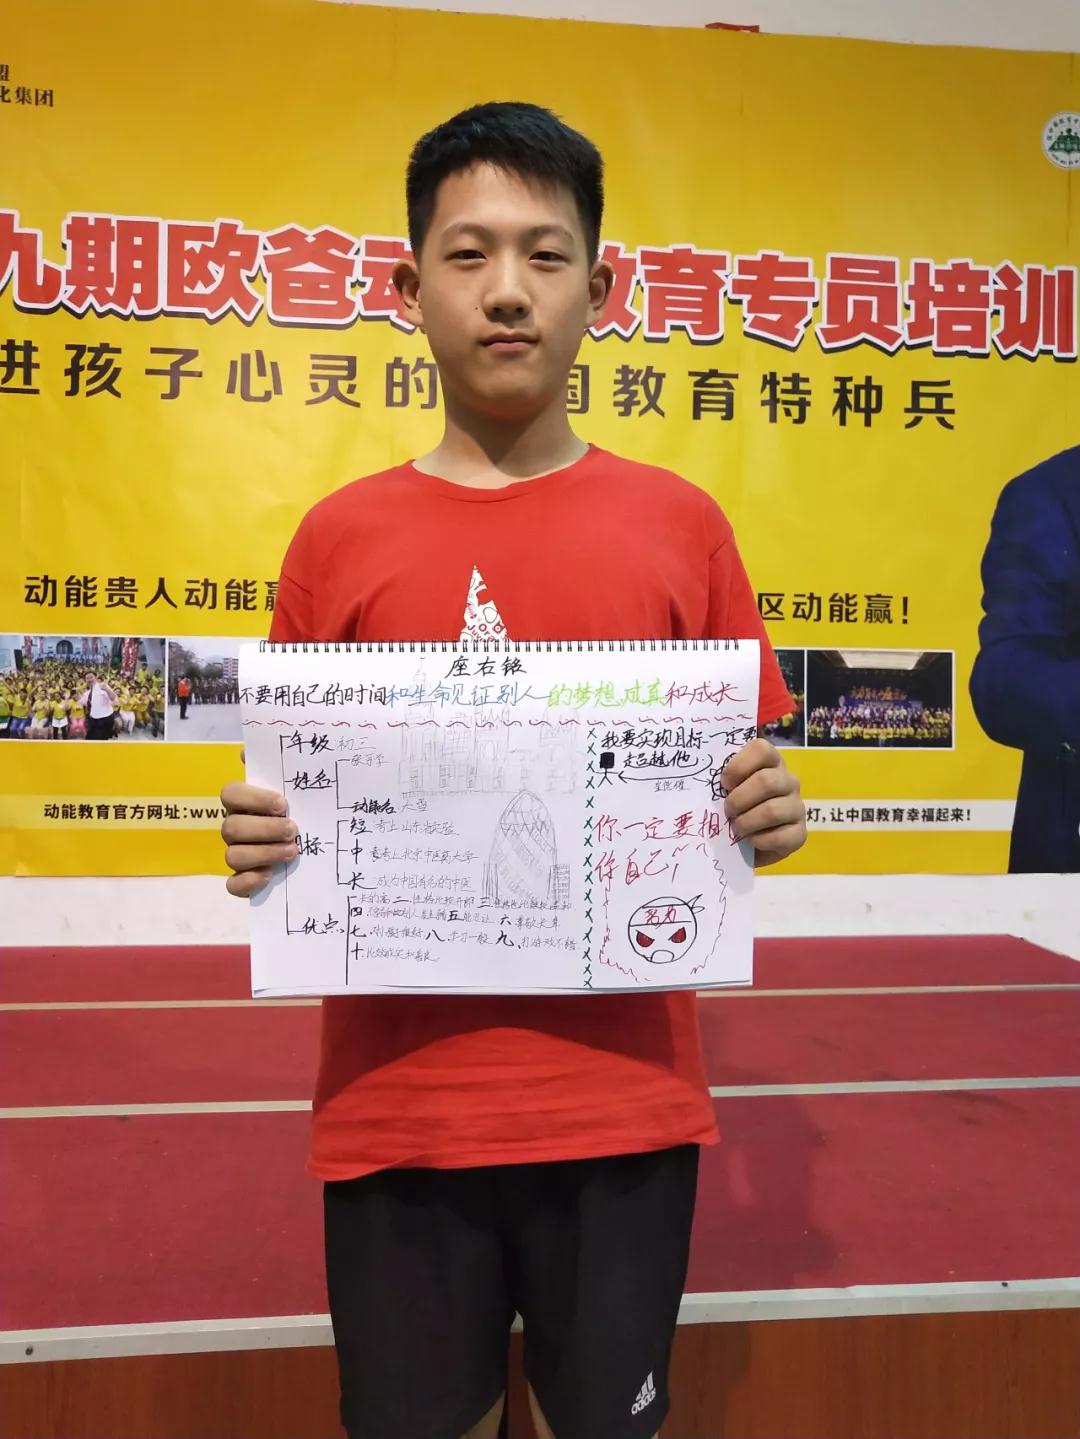 盟
化集团
九期欧爸动 教育专员培训
进孩子心灵的 国教育特种兵
动能贵人动能赢
区动能赢！
座右铭
不要用自己的时间和生命见证别人的梦想成真和成长
年级 初三
姓名
动能名 大雪
目标
短 考上山东省实验
中 要考上北京中医药大学
长 成为中国有名的中医
优点
一 长的高 二.性格比较开朗 三
五 能力让 六.尊敬大辈
七. 八.学习一般 九.打游戏不错
十.比较诚实和善良
我要实现目标一定要
超越他
你一定要相信
你自己
努力
动能教育官方网址:www
灯，让中国教育幸福起来！
adidas